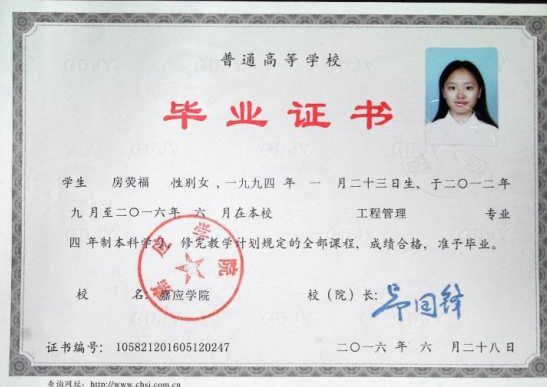 普通高等学校
毕业证书
学生 房荧福 性别女，一九九四 年 一 月二十三日生，于二〇一二年
九 月至二〇一六年 六 月在本校 工程管理 专业
四 年制本科学习，修完教学计划规定的全部课程，成绩合格，准予毕业。
嘉应学院
校 名：嘉应学院 校（院）长：
证书编号： 105821201605120247 二〇一六 年 六 月二十八日
查询网址：http://www.chsi.com.cn